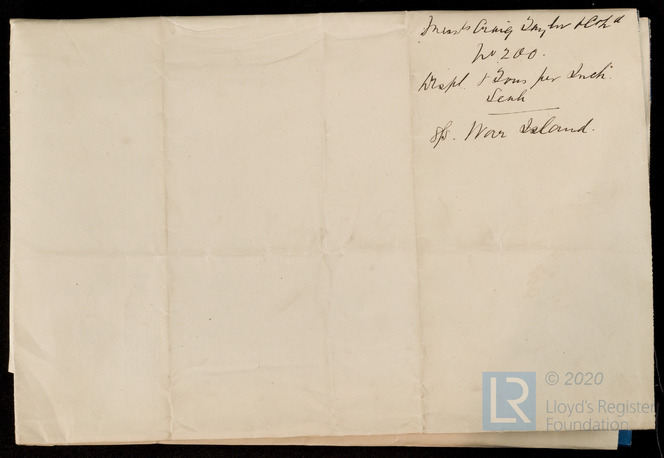 Messrs Craig Taylor & Co Ld
No 200.
Displ. & Tons per Inch.
Scale
S/S. War Island.
LR
© 2020
Lloyd's Register
Foundation